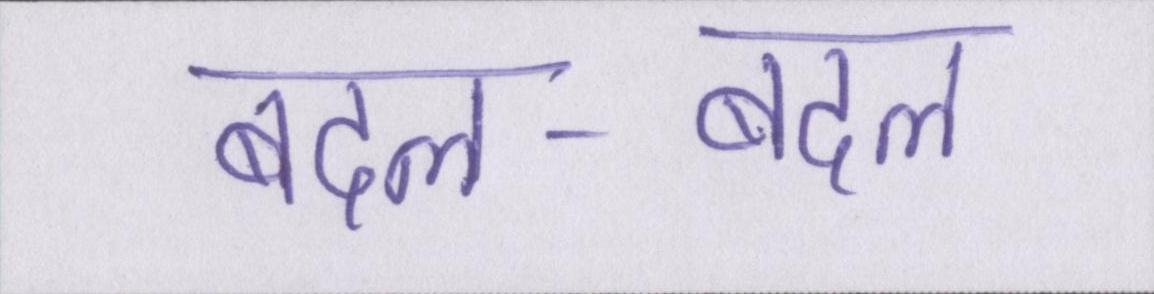 बदल-बदल